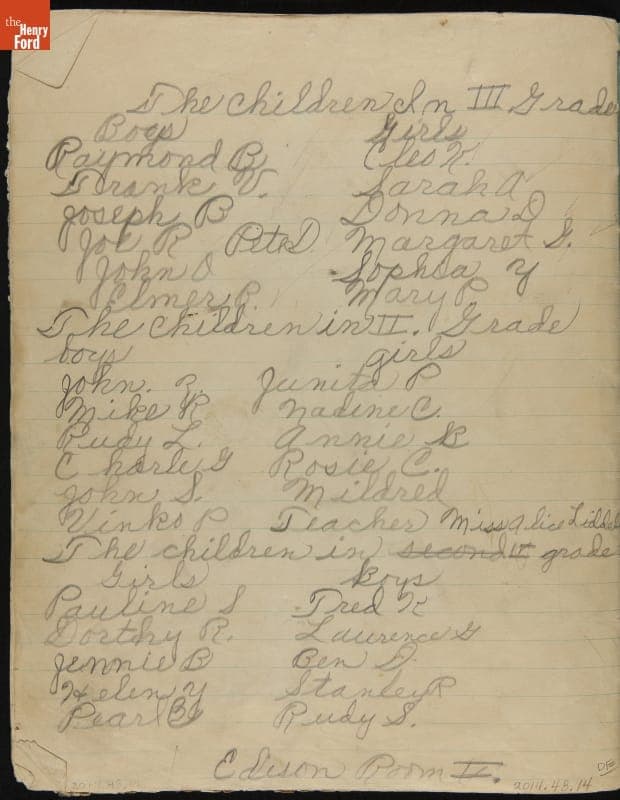 the Henry Ford
The children In III Grade
Boys Girls
Raymond B Cleo K.
Frank V. Sarah A
Joseph B Donna D
Joe R Pete D. Margaret S.
John O Sophia Y
Elmer P. Mary P.
The children in II. Grade
boys girls
John. Z. Junita P
Mike K Nadine C.
Rudy L. Annie B
Charle G Rosie C.
John S. Mildred
Vinko P Teacher Miss Alice Liddel
The children in second II grade
Girls Boys
Pauline S Fred K
Dorthy R. Laurence G
Jennie B Ben D.
Helen Y Stanley R
Pearl B Rudy S.
Edison Room II.
2014.48.14